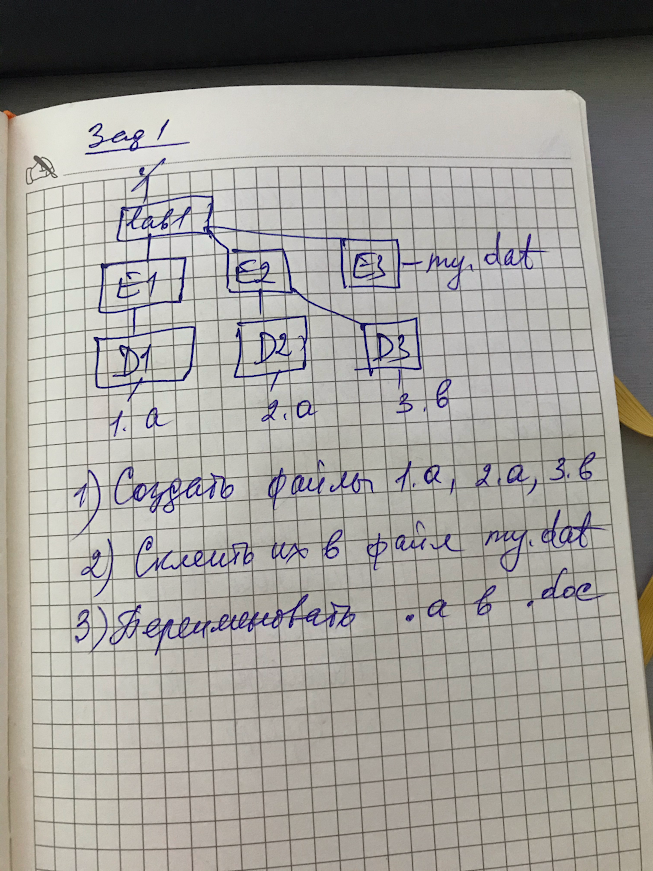 Зад 1
lab1
E1 E2 E3 - my.dat
D1 D2 D3
1.a 2.a 3.в
1) Создать файлы 1.a, 2.a, 3.в
2) Склеить их в файл my.dat
3) Переименовать .a в .doc